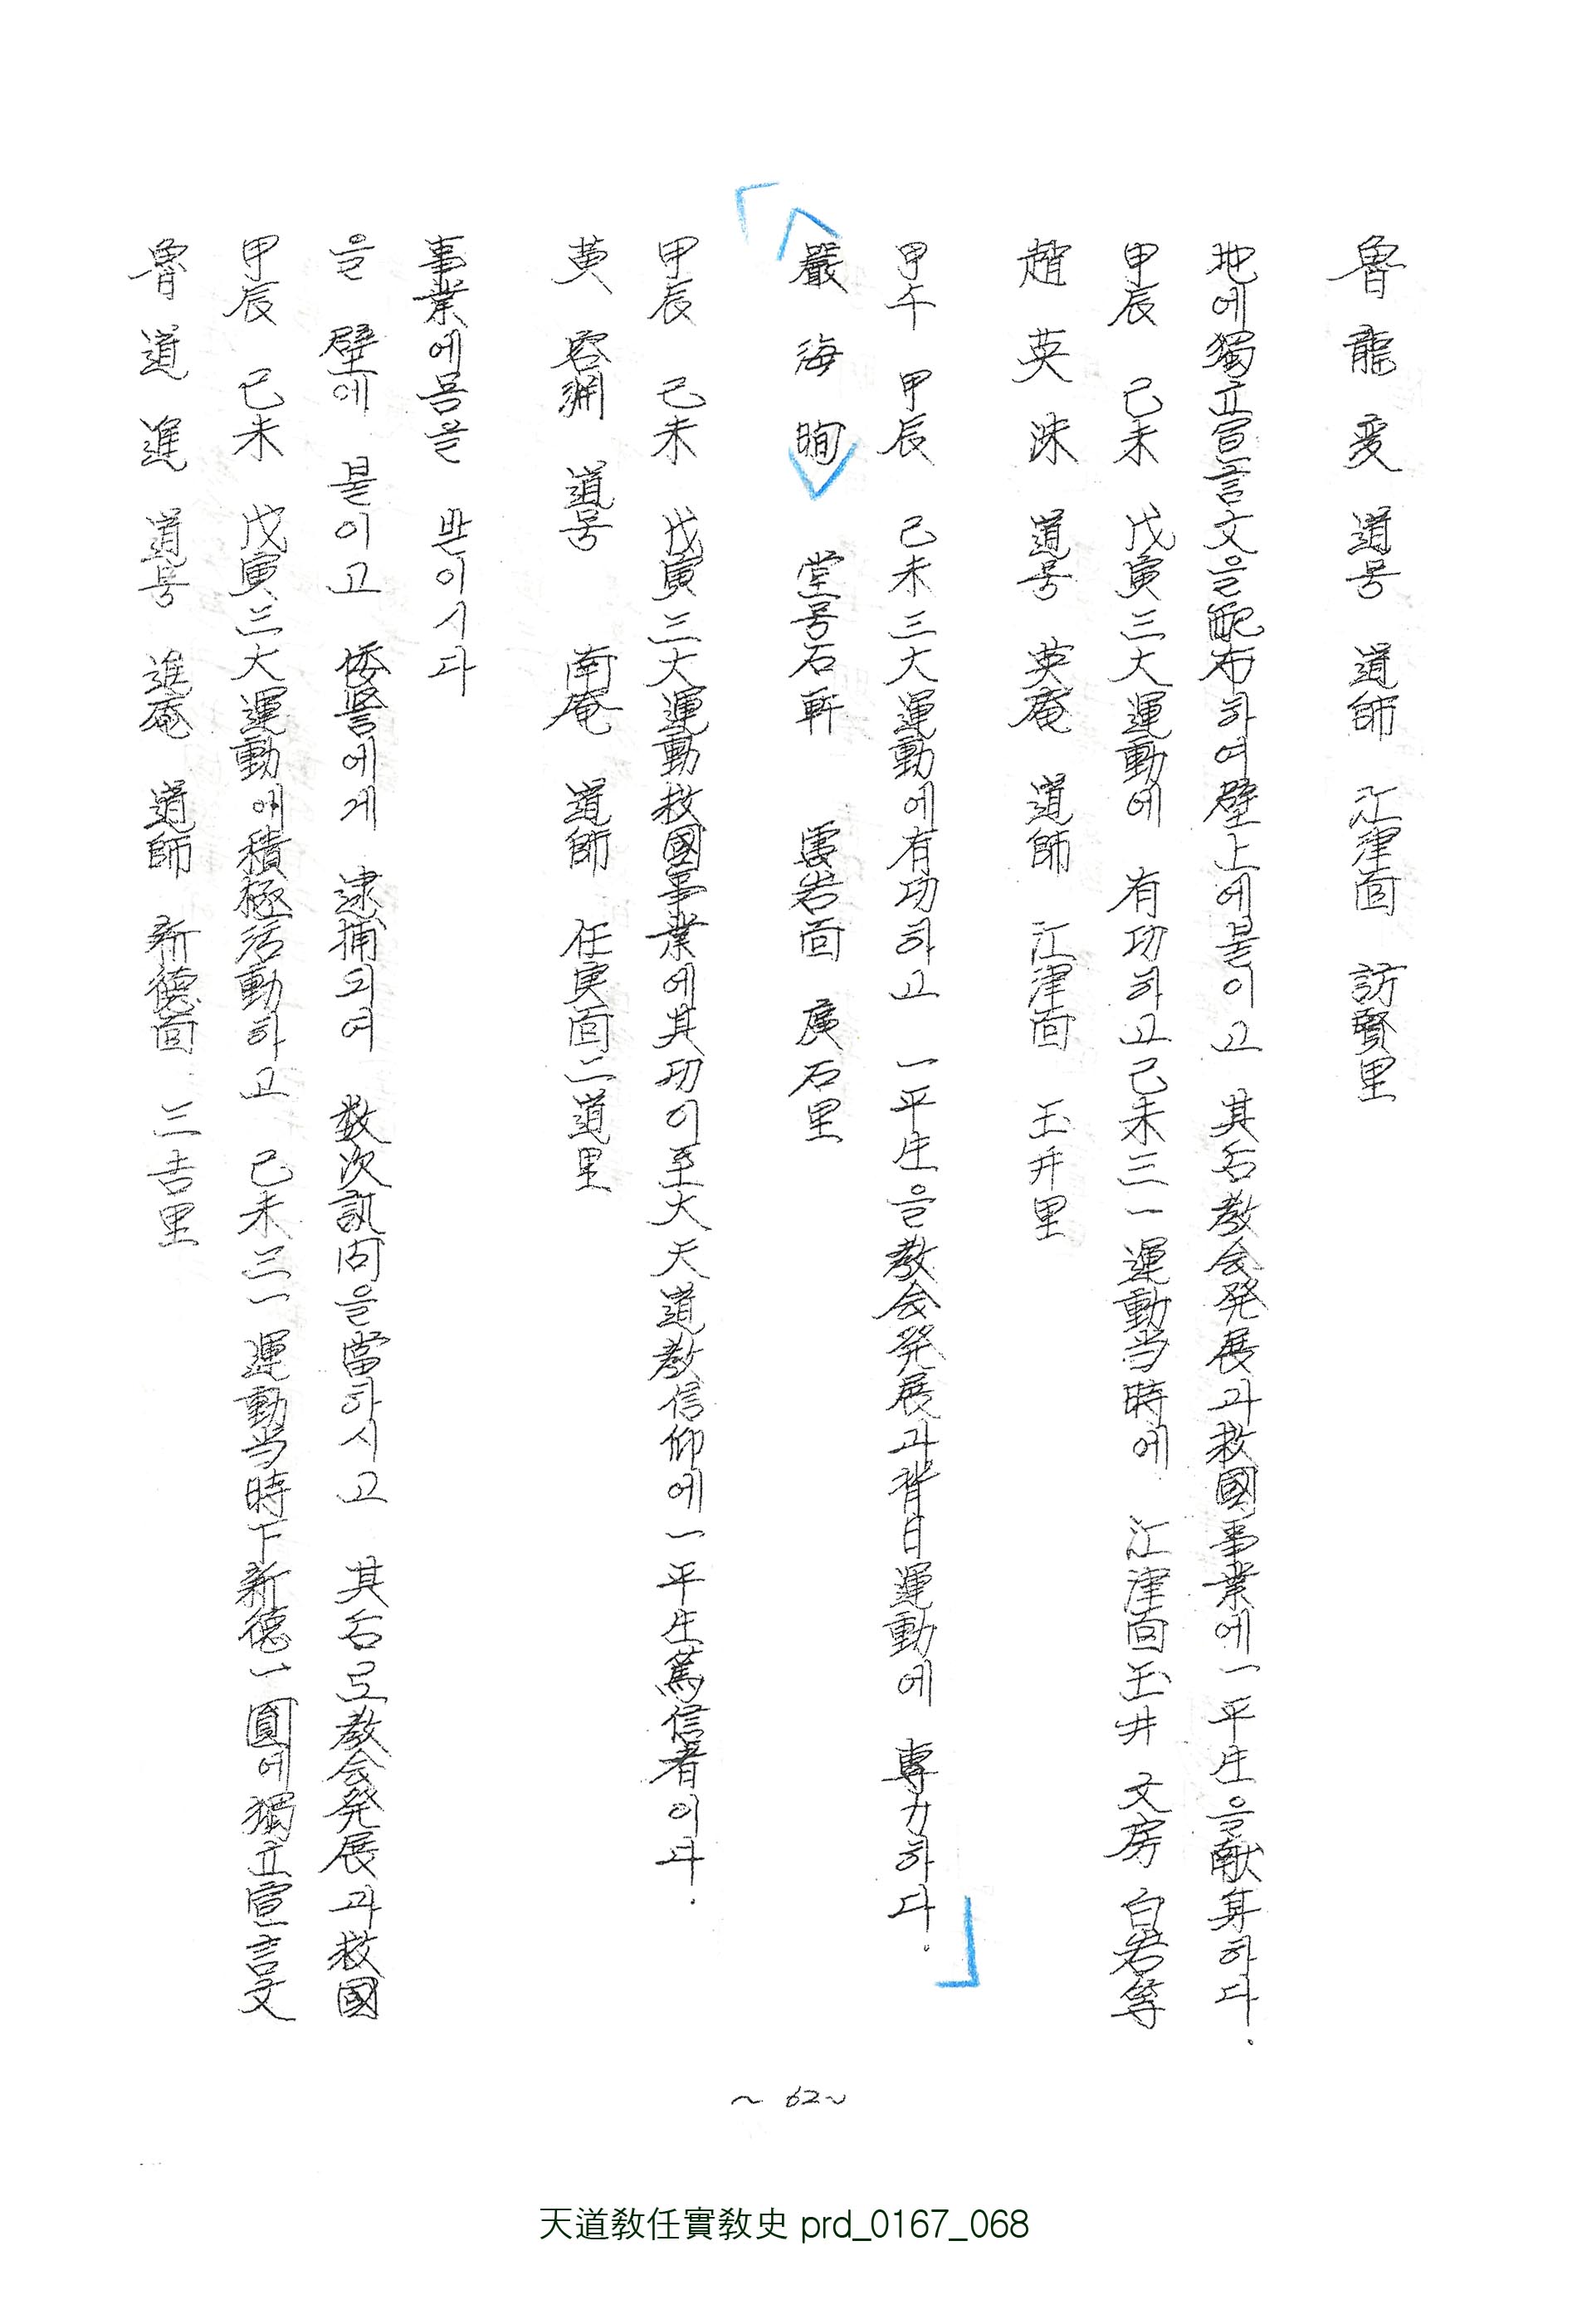 魯 道 進 道号 進庵 道師 新德面 三吉里
甲辰 己未 戊寅三大運動에積極活動하고 己未三一運動当時下新德一圓에獨立宣言文
을 壁에 붙이고 倭警에게 逮捕되여 数次訊问을當하시고 其后도教会発展과救國
事業에몸을 받이시다
黄 容渊 道号 南庵 道師 任実面二道里
甲辰 己未 戊寅三大運動救國事業에其功이至大天道教信仰에一平生篤信者이다.
嚴 海 晌 堂号石軒 雲岩面 廣石里
甲午 甲辰 己未三大運動에有功하고 一平生을教会発展과背日運動에 專力하다.
趙 英 洙 道号 英庵 道師 江津面 玉井里
甲辰 己未 戊寅三大運動에 有功하고己未三一運動当時에 江津面玉井 文房 白岩等
地에獨立宣言文을配布하여壁上에붙이고 其后教会発展과救國事業에一平生을献身하다.
魯 龍 変 道号 道師 江津面 訪賢里
~ 62~
天道敎任實敎史 prd_0167_068